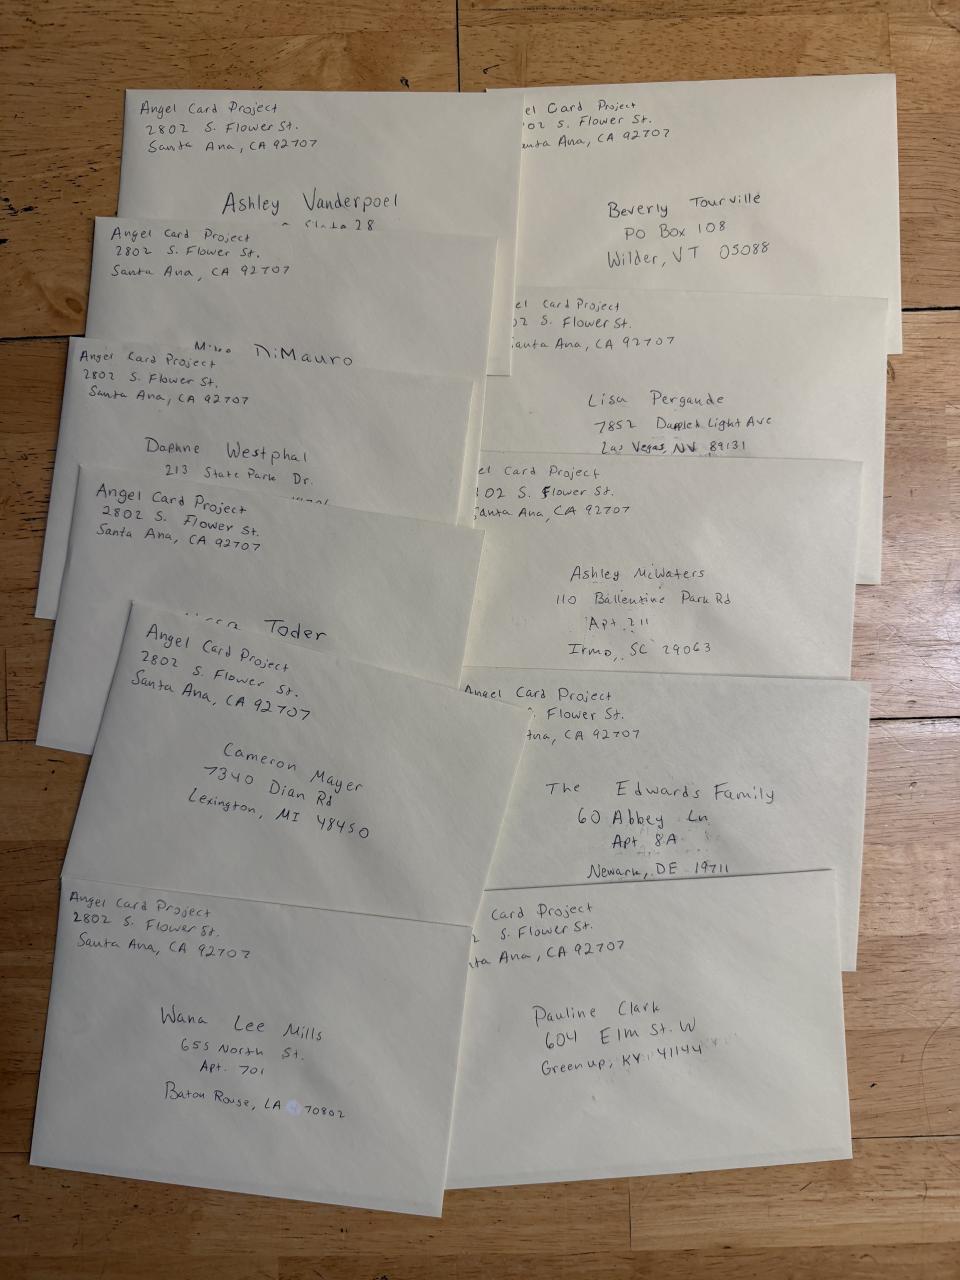 Angel Card Project
2802 S. Flower St.
Santa Ana, CA 92707
Ashley Vanderpoel
28
Angel Card Project
2802 S. Flower St.
Santa Ana, CA 92707
DiMauro
Angel Card Project
2802 S. Flower St.
Santa Ana, CA 92707
Daphne Westphal
213 State Park Dr.
Angel Card Project
2802 S. Flower St.
Santa Ana, CA 92707
Toder
Angel Card Project
2802 S. Flower St.
Santa Ana, CA 92707
Cameron Mayer
7340 Dian Rd
Lexington, MI 48450
Angel Card Project
2802 S. Flower St.
Santa Ana, CA 92707
Wana Lee Mills
655 North St.
Apt. 701
Baton Rouge, LA 70802
el Card Project
02 S. Flower St.
anta Ana, CA 92707
Beverly Tourville
PO Box 108
Wilder, VT 05088
el Card Project
02 S. Flower St.
anta Ana, CA 92707
Lisa Pergande
7852 Dappled Light Ave
Las Vegas, NV 89131
el Card Project
802 S. Flower St.
Santa Ana, CA 92707
Ashley McWaters
110 Ballentine Park Rd
Apt. 211
Irmo, SC 29063
Angel Card Project
S. Flower St.
Ana, CA 92707
The Edwards Family
60 Abbey Ln
Apt 8A
Newark, DE 19711
Card Project
2 S. Flower St.
nta Ana, CA 92707
Pauline Clark
604 Elm St. W
Greenup, KY 41144